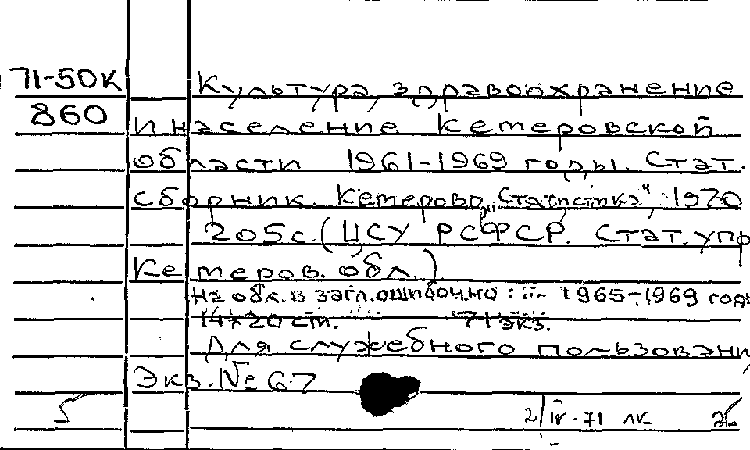 71-50К Культура, здравоохранение
860 и население Кемеровской
области 1961-1969 годы. Стат.
сборник. Кемерово, „Статистика", 1970
205с. (ЦСУ РСФСР. Стат. упр
Кемеров. обл.)
На обл. и загл. ошибочно: 1965-1969 годы
14х20 см. 71 экз.
Для служебного пользовани
Экз. № 67
5 2/IV-71 лк